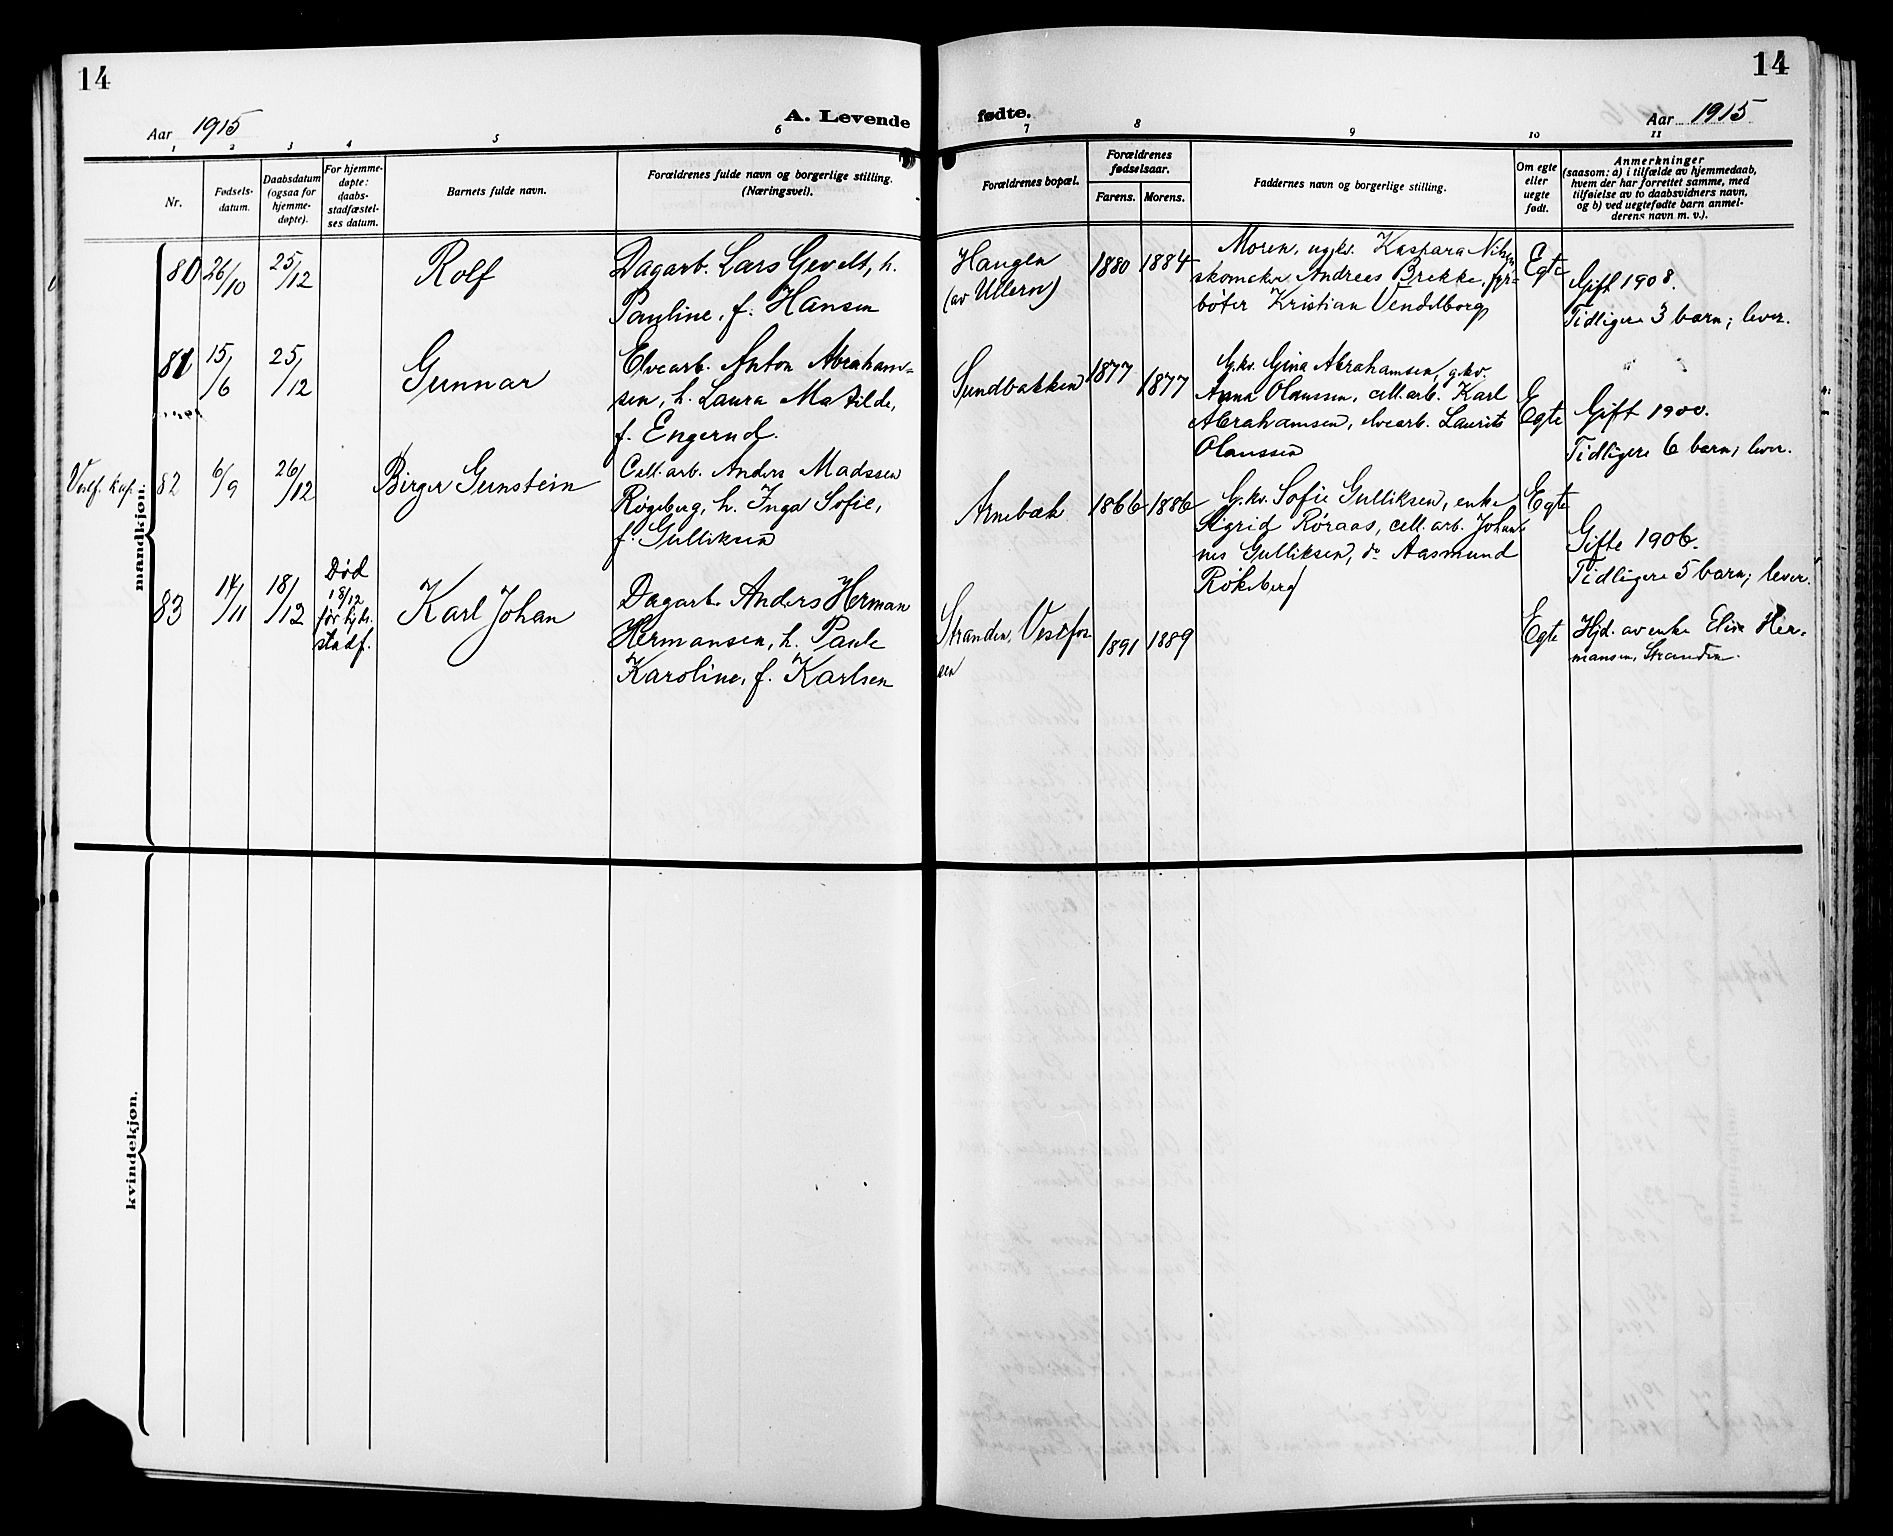 14
14
Aar 1915
A. Levende
fødte.
Aar 1915
1 2 3 4 5 6 7 8 9 10 11
Nr.
Fødsels-
datum.
Daabsdatum
(ogsaa for
hjemme-
døpte).
For hjemme-
døpte:
daabs-
stadfæstel-
ses datum.
Barnets fulde navn.
Forældrenes fulde navn og borgerlige stilling.
(Næringsvei).
Forældrenes bopæl.
Forældrenes
fødselsaar.
Farens. Morens.
Faddernes navn og borgerlige stilling.
Om egte
eller
uegte
født.
Anmerkninger
(saasom: a) i tilfælde av hjemmedaab,
hvem der har forrettet samme, med
tilføielse av to daabsvidners navn,
og b) ved uegtefødte barn anmel-
derens navn m. v.).
mandkjøn.
80 26/10 25/12
Rolf
Dagarb. Lars Gevelt, h.
Pauline, f. Hansen
Haugen
(av Ullern)
1880 1884
Moren, ugkv. Kaspara Nilsen
skomaker Andreas Brekke, fyr-
bøter Kristian Vendelborg
Egte
Gift 1908.
Tidligere 3 barn; lever.
81 15/6 25/12
Gunnar
Elvearb. Anton Abraham-
sen, h. Laura Matilde,
f. Engerud.
Sundbakken
1877 1877
G.kv. Gina Abrahamsen, g.kv.
Anna Olaussen, cell.arb. Karl
Abrahamsen, elvearb. Laurits
Olaussen
Egte
Gift 1900.
Tidligere 6 barn, lever.
Vestf. kap.
82 6/9 26/12
Birger Gunstein
Cell.arb. Anders Madssen
Røgeberg, h. Inga Sofie,
f. Gulliksen
Arnebæk
1866 1886
G.kv. Sofie Gulliksen, enke
Sigrid Røraas, cell.arb. Johan-
nes Gulliksen, do Aasmund
Røkeberg
Egte
Gifte 1906.
Tidligere 5 barn; lever.
83 14/11 18/12
Død
18/12
før hjd.
stadf.
Karl Johan
Dagarb. Anders Herman
Hermansen, h. Paula
Karoline, f. Karlsen
Stranden, Vestfos-
sen
1891 1889
Egte
Hjd. av enke Elise Her-
mansen, Stranden.
kvindekjøn.